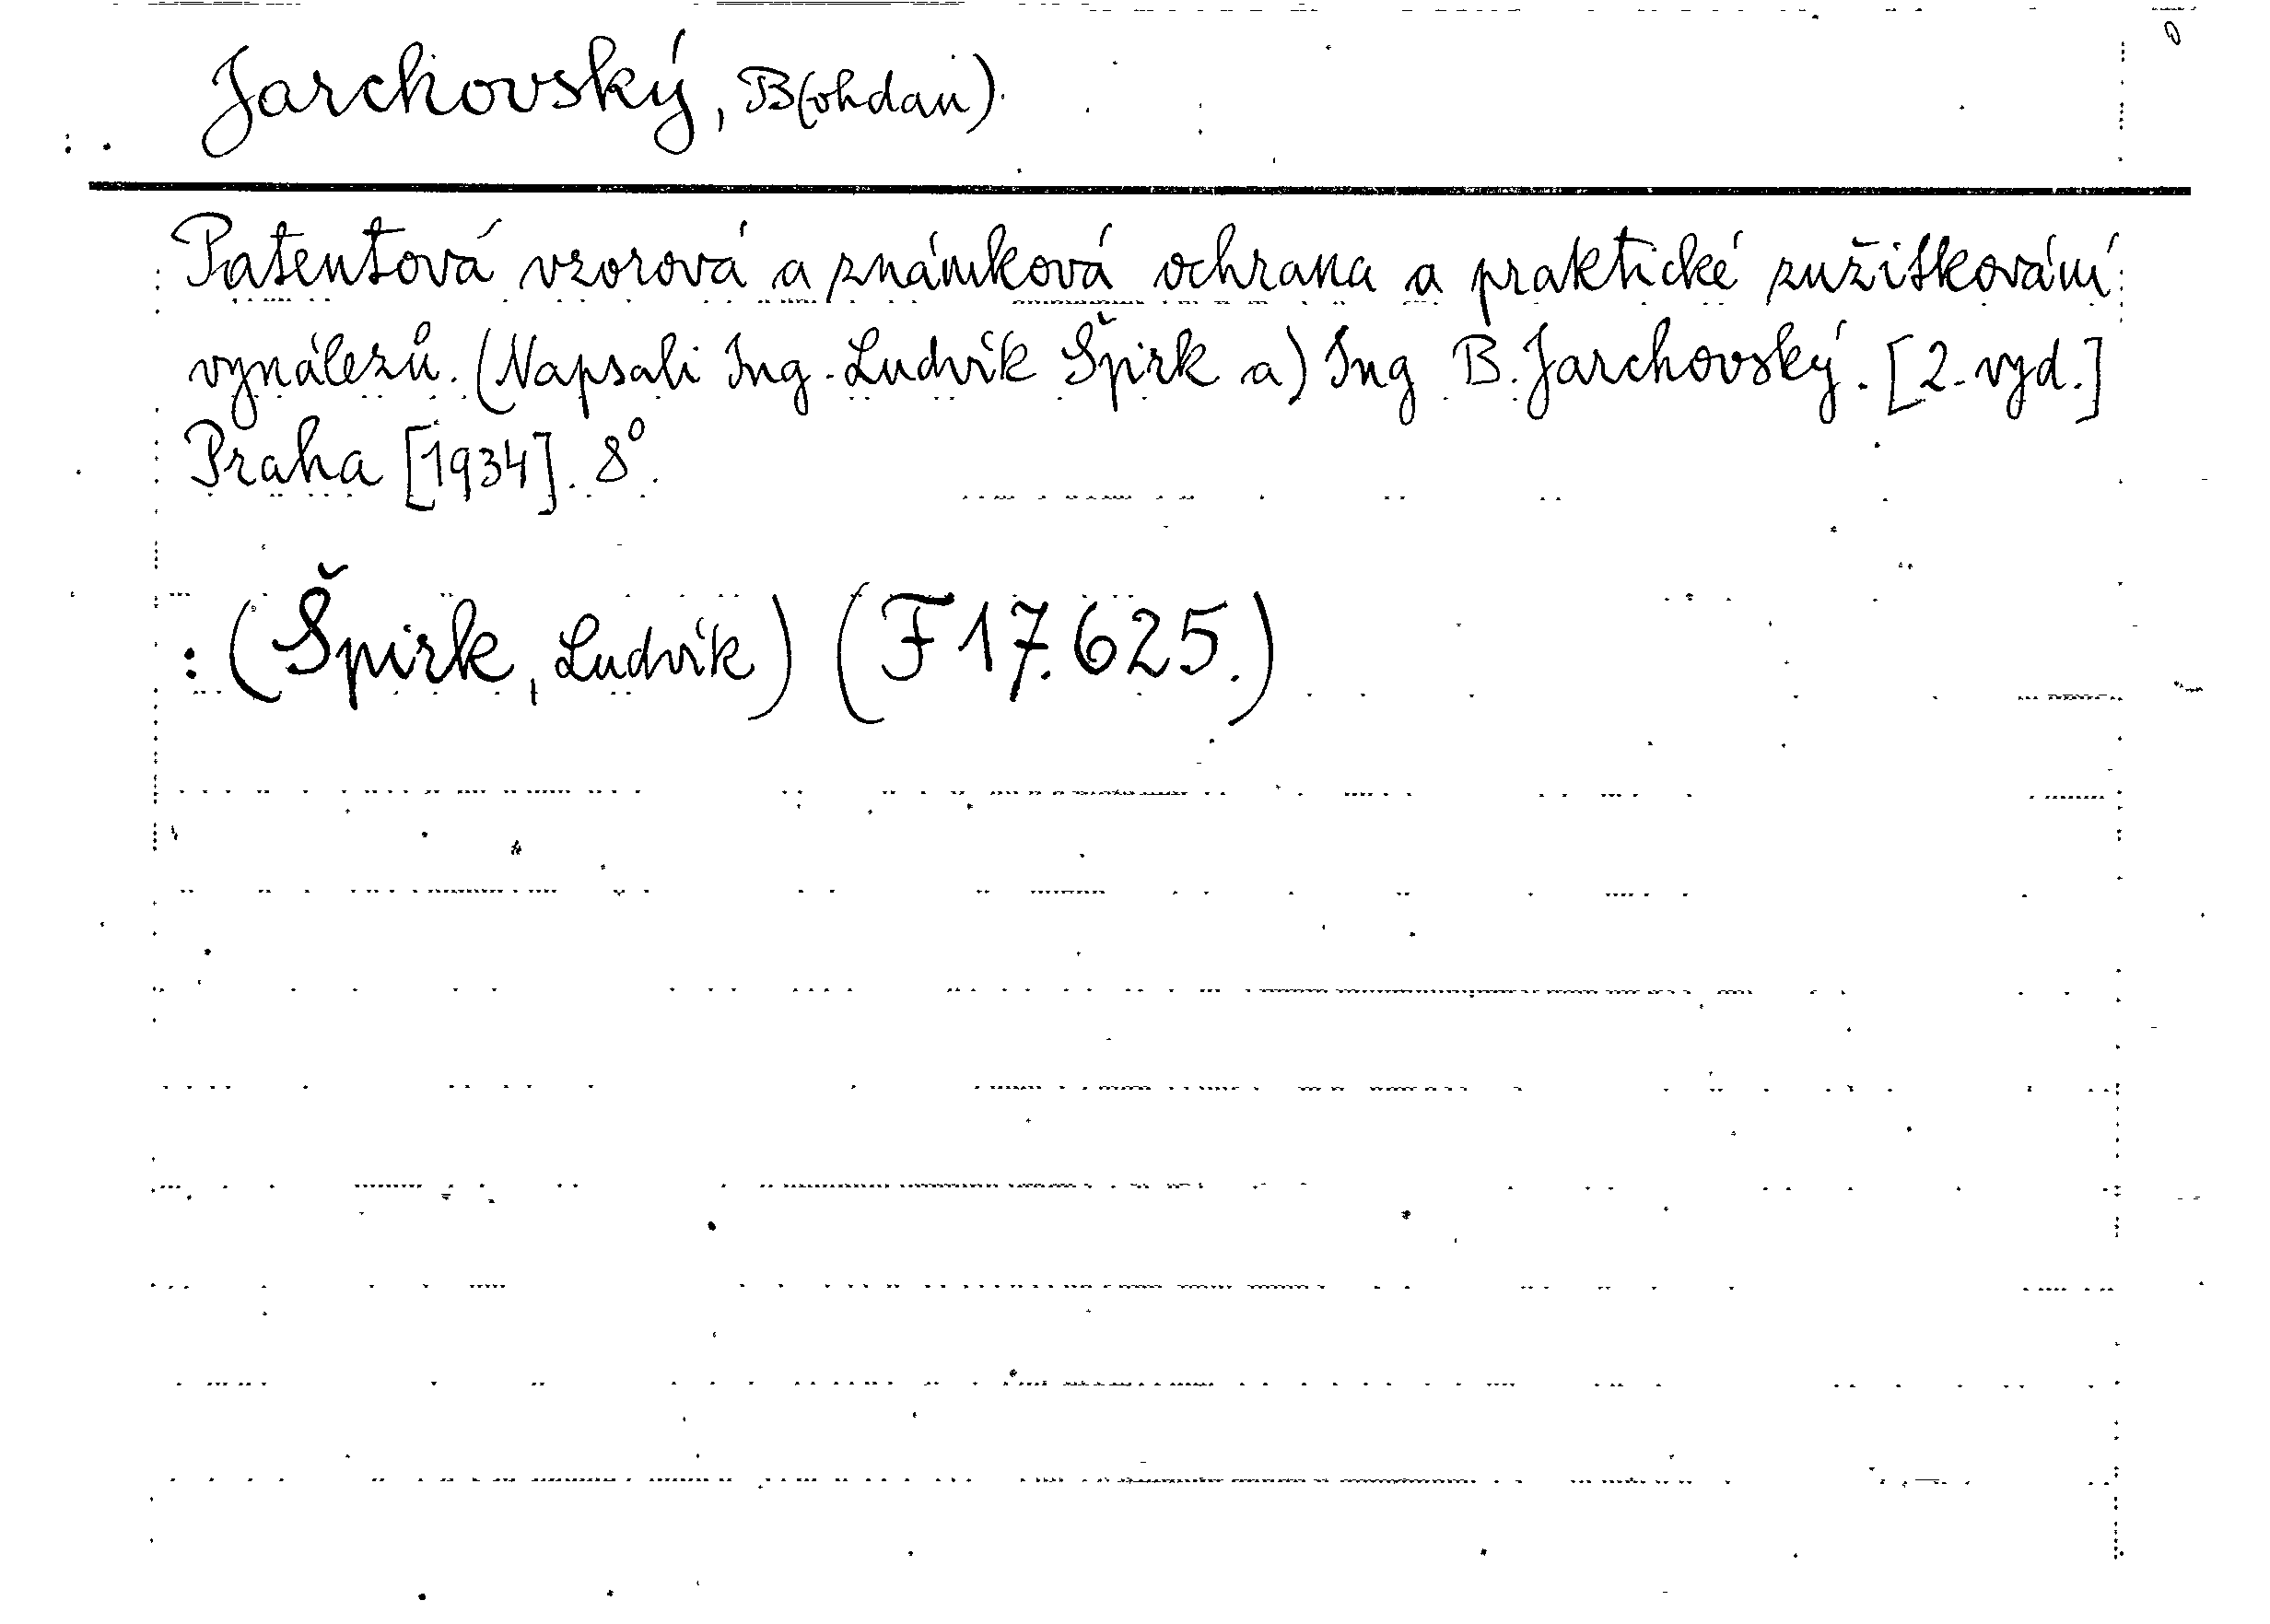 Jarchovský, B(ohdan)
Patentová vzorová a známková ochrana a praktické zužitkování
vynálezů. (Napsali Ing. Ludvík Špirk a) Ing B. Jarchovský. [2. vyd.]
Praha [1934]. 8°.
: (Špirk, Ludvík) (F 17.625.)